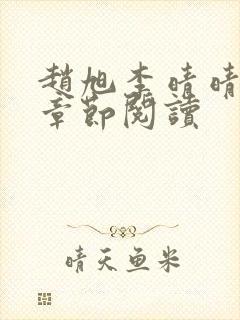 趙旭李晴晴
章節閱讀
晴天鱼米